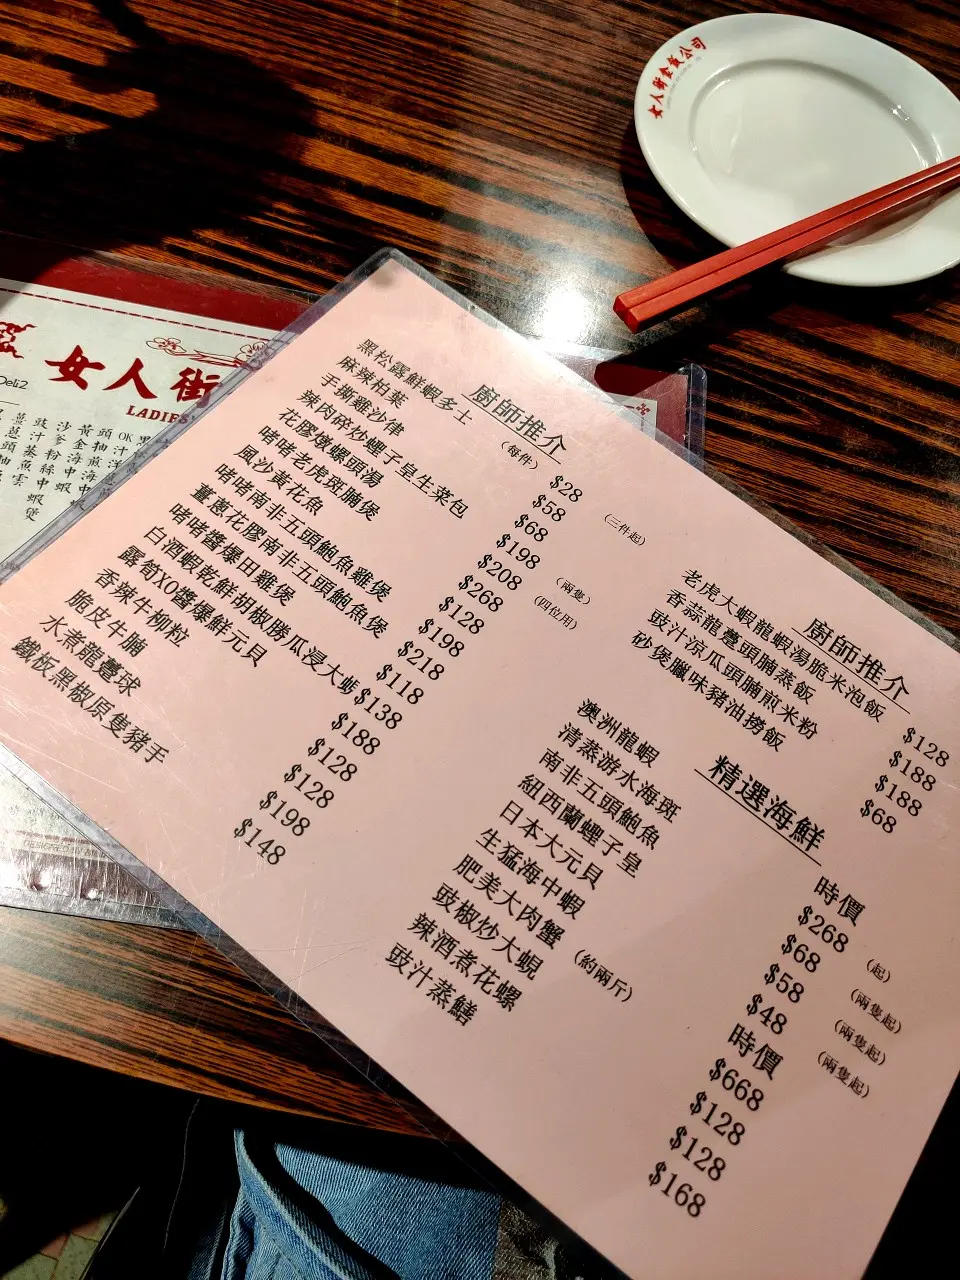 女人街食飯公司
Deli2
女人街
LADIES
廚師推介
黑松露鮮蝦多士 (每件) $28 (三件起)
麻辣柏葉 $58
手撕雞沙律 $68
辣肉碎炒蟶子皇生菜包 $198 (兩隻)
花膠燉螺頭湯 $208 (四位用)
啫啫老虎斑腩煲 $268
風沙黃花魚 $128
啫啫南非五頭鮑魚雞煲 $198
薑蔥花膠南非五頭鮑魚煲 $218
啫啫醬爆田雞煲 $118
白酒蝦乾鮮胡椒勝瓜浸大蜆 $138
露筍XO醬爆鮮元貝 $188
香辣牛柳粒 $128
脆皮牛腩 $128
水煮龍躉球 $198
鐵板黑椒原隻豬手 $148
廚師推介
老虎大蝦龍蝦湯脆米泡飯 $128
香蒜龍躉頭腩蒸飯 $188
豉汁涼瓜頭腩煎米粉 $188
砂煲臘味豬油撈飯 $68
精選海鮮
澳洲龍蝦 時價
清蒸游水海斑 $268 (起)
南非五頭鮑魚 $68 (兩隻起)
紐西蘭蟶子皇 $58 (兩隻起)
日本大元貝 $48 (兩隻起)
生猛海中蝦 時價
肥美大肉蟹 (約兩斤) $668
豉椒炒大蜆 $128
辣酒煮花螺 $128
豉汁蒸鱔 $168